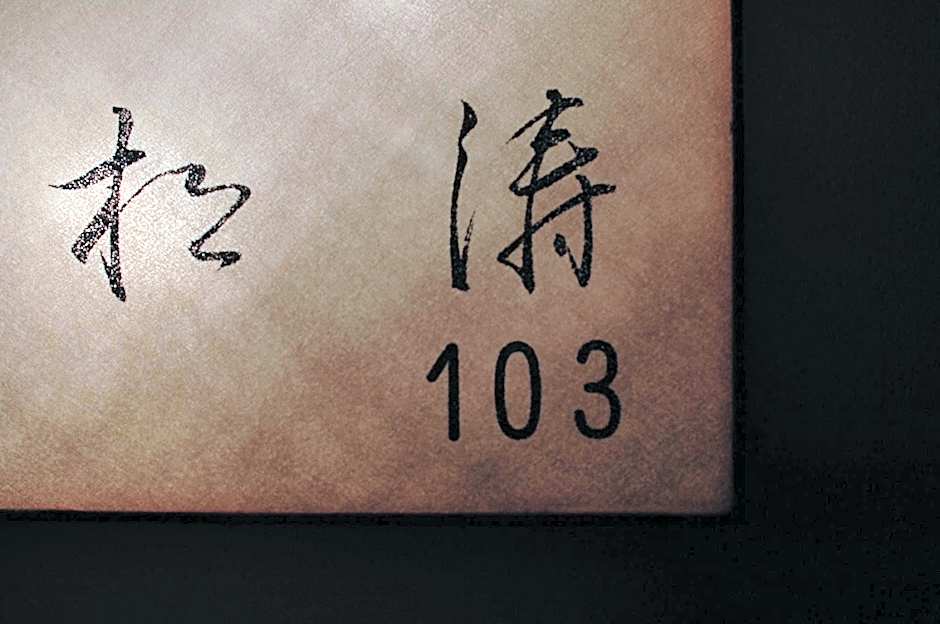 松涛
103